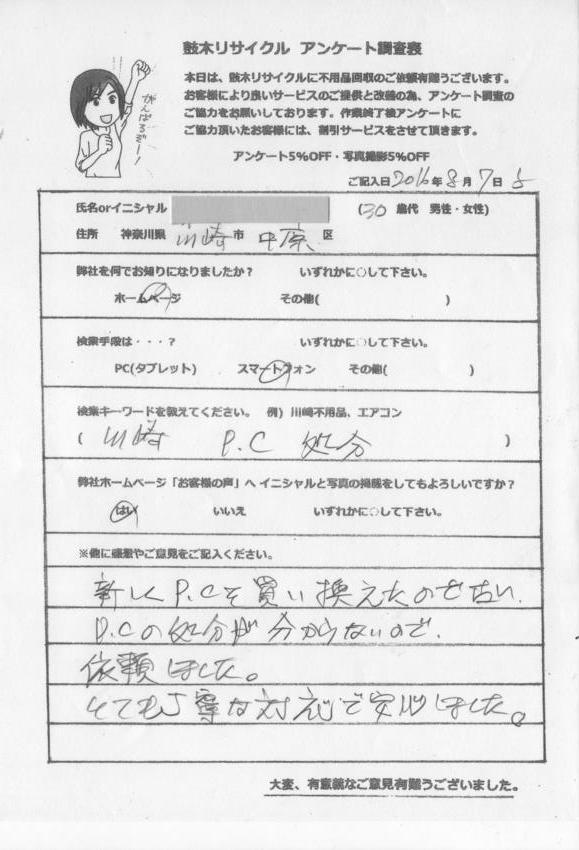 鼓木リサイクル アンケート調査表
本日は、鼓木リサイクルに不用品回収のご依頼有難うございます。
お客様により良いサービスのご提供と改善の為、アンケート調査の
ご協力をお願いしております。作業終了後アンケートに
ご協力頂いたお客様には、割引サービスをさせて頂きます。
がんばるぞー!
アンケート5%OFF・写真撮影5%OFF
ご記入日 2016年 8月 7日
氏名orイニシャル (30 歳代 男性・女性)
住所 神奈川県 川崎 市 中原 区
弊社を何でお知りになりましたか? いずれかに○して下さい。
ホームページ その他( )
検索手段は・・・? いずれかに○して下さい。
PC(タブレット) スマートフォン その他( )
検索キーワードを教えてください。 例) 川崎不用品、エアコン
( 川崎 P.C 処分 )
弊社ホームページ「お客様の声」へ イニシャルと写真の掲載をしてもよろしいですか?
はい いいえ いずれかに○して下さい。
※他に感想やご意見をご記入ください。
新しくP.Cを買い換えたので古い
P.Cの処分が分からないので、
依頼しました。
とても丁寧な対応で安心しました。
大変、有意義なご意見有難うございました。